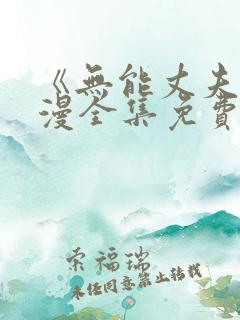 《無能丈夫
漫全集免費
索福瑞
未经同意禁止转载